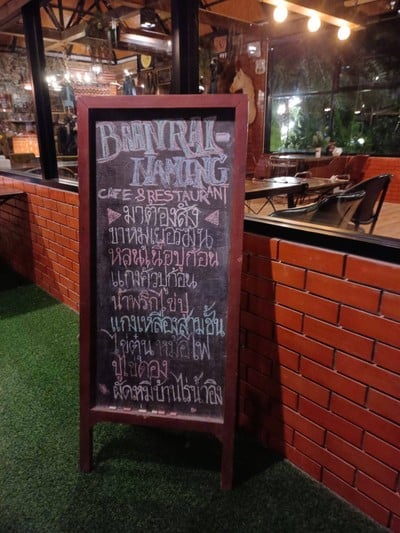 BAANRAI-
NAMING
CAFE & RESTAURANT
มาต้องสั่ง
ขาหมูเยอรมัน
หลนเนื้อปูก้อน
แกงคั่วปูก้อน
น้ำพริกไข่ปู
แกงเหลืองสามชั้น
ไข่ตุ๋นหม้อไฟ
ปูไข่ดอง
ผัดหมี่บ้านไร่น้ำอิง